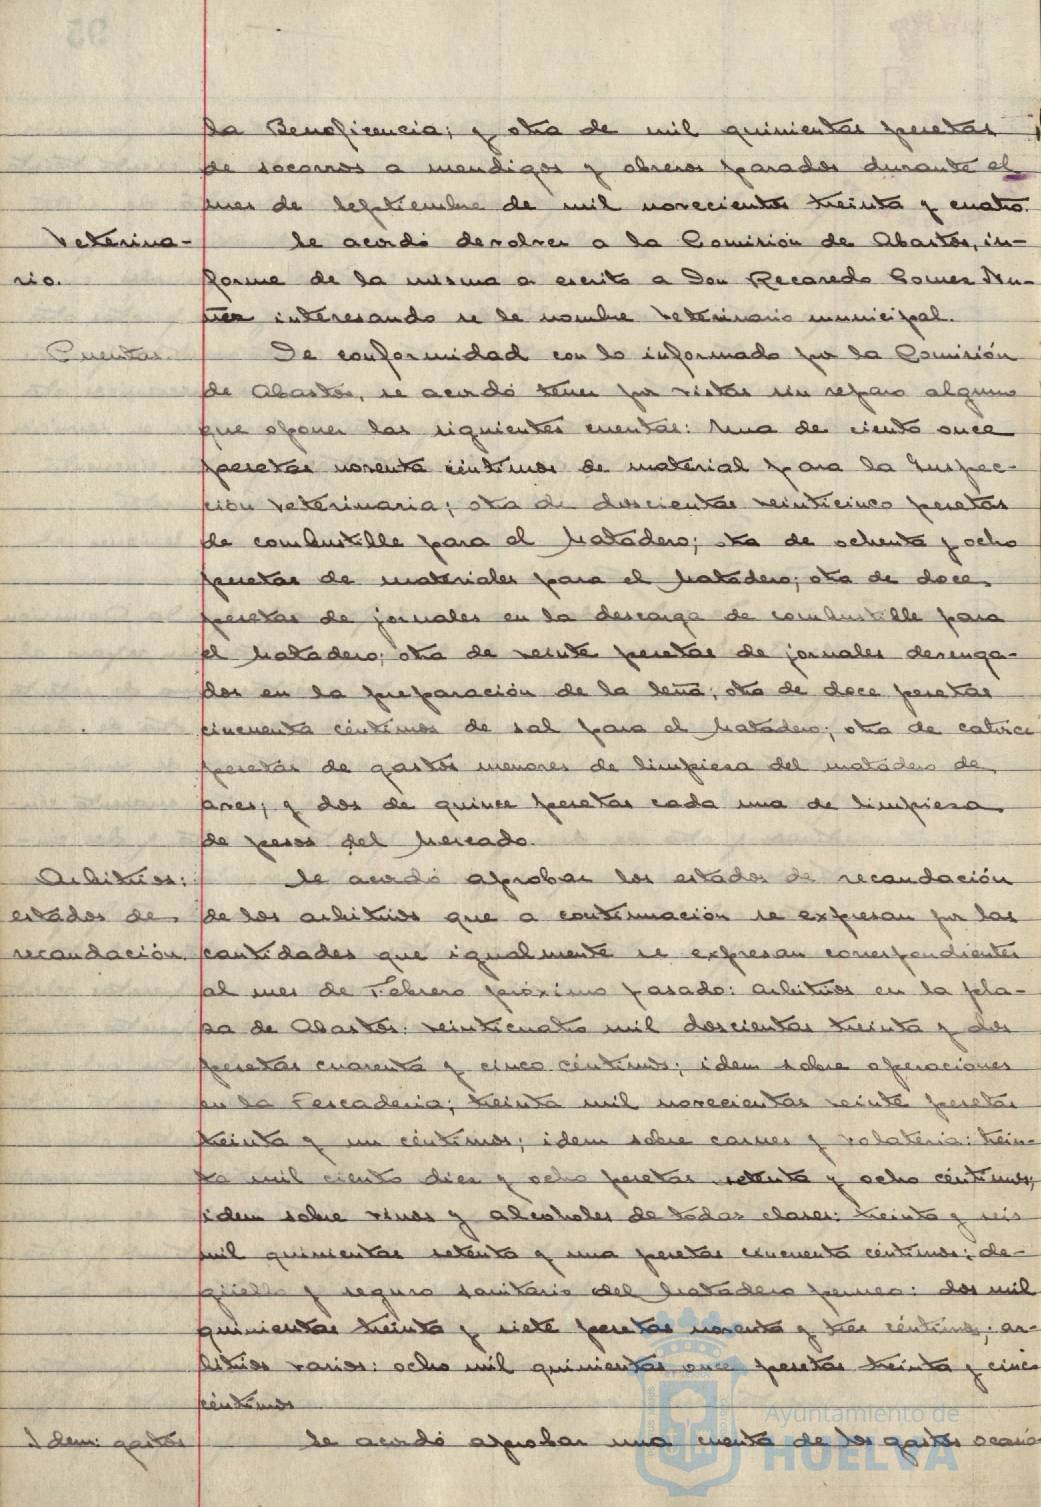 la Beneficencia; y otra de mil quinientas pesetas
de socorros a mendigos y obreros parados durante el
mes de Septiembre de mil novecientos treinta y cuatro.
Veterina-
rio.
Se acordó devolver a la Comisión de Abastos, in-
forme de la misma a escrito a Don Recaredo Gomez Nu-
ñez interesando se le nombre Veterinario municipal.
Cuentas.
De conformidad con lo informado por la Comisión
de Abastos, se acordó tener por vistas sin reparo alguno
que oponer las siguientes cuentas: Una de ciento once
pesetas noventa céntimos de material para la Inspec-
ción Veterinaria; otra de doscientas veinticinco pesetas
de combustible para el Matadero; otra de ochenta y ocho
pesetas de materiales para el Matadero; otra de doce
pesetas de jornales en la descarga de combustible para
el Matadero; otra de veinte pesetas de jornales devenga-
dos en la preparación de la leña; otra de doce pesetas
cincuenta céntimos de sal para el Matadero; otra de catorce
pesetas de gastos menores de limpieza del matadero de
aves; y dos de quince pesetas cada una de limpieza
de pesos del Mercado.
Arbitrios:
estados de
recaudación.
Se acordó aprobar los estados de recaudación
de los arbitrios que a continuación se expresan por las
cantidades que igualmente se expresan correspondientes
al mes de Febrero próximo pasado: arbitrios en la pla-
za de Abastos: veinticuatro mil doscientas treinta y dos
pesetas cuarenta y cinco céntimos; idem sobre operaciones
en la Pescaderia; treinta mil novecientas veinte pesetas
treinta y un céntimos; idem sobre carnes y volateria: trein-
ta mil ciento diez y ocho pesetas setenta y ocho céntimos;
idem sobre vinos y alcoholes de todas clases: treinta y seis
mil quinientas setenta y una pesetas cincuenta céntimos; de-
güello y seguro sanitario del Matadero : dos mil
quinientas treinta y siete pesetas noventa y tres céntimos; ar-
bitrios varios: ocho mil quinientas once pesetas treinta y cinco
céntimos
Idem: gastos
Se acordó aprobar una cuenta de los gastos ocasio-
Ayuntamiento de
HUELVA